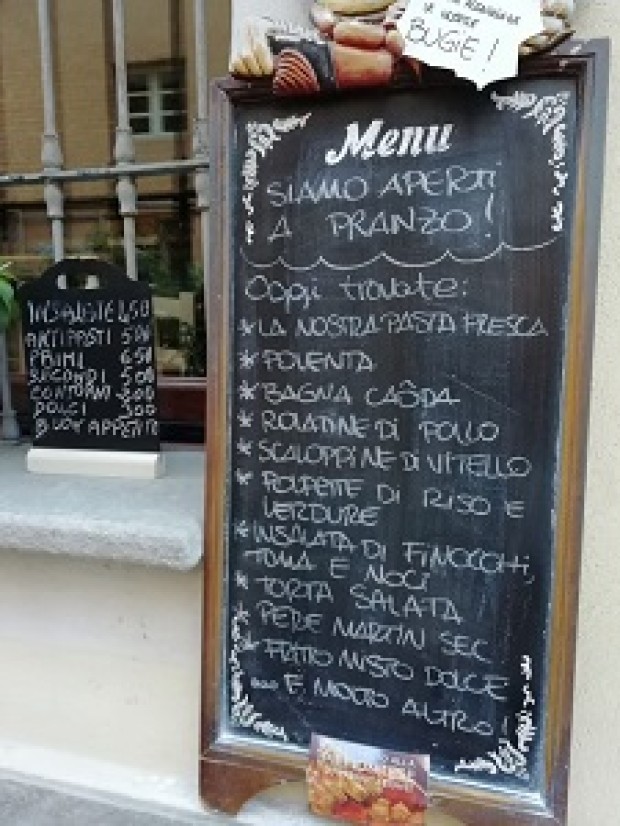 BUGIE!
Menu
SIAMO APERTI
A PRANZO!
Oggi trovate:
* LA NOSTRA PASTA FRESCA
* POLENTA
* BAGNA CAÔDA
* ROLATINE DI POLLO
* SCALOPPINE DI VITELLO
* POLPETTE DI RISO E
VERDURE
* INSALATA DI FINOCCHI,
TOMA E NOCI
* TORTA SALATA
* PERE MARTIN SEC
* FRITTO MISTO DOLCE
... E MOLTO ALTRO!
ANTIPASTI 5,00
PRIMI 6,50
SECONDI 5,00
CONTORNI
DOLCI 3,00
BUON APPETITO